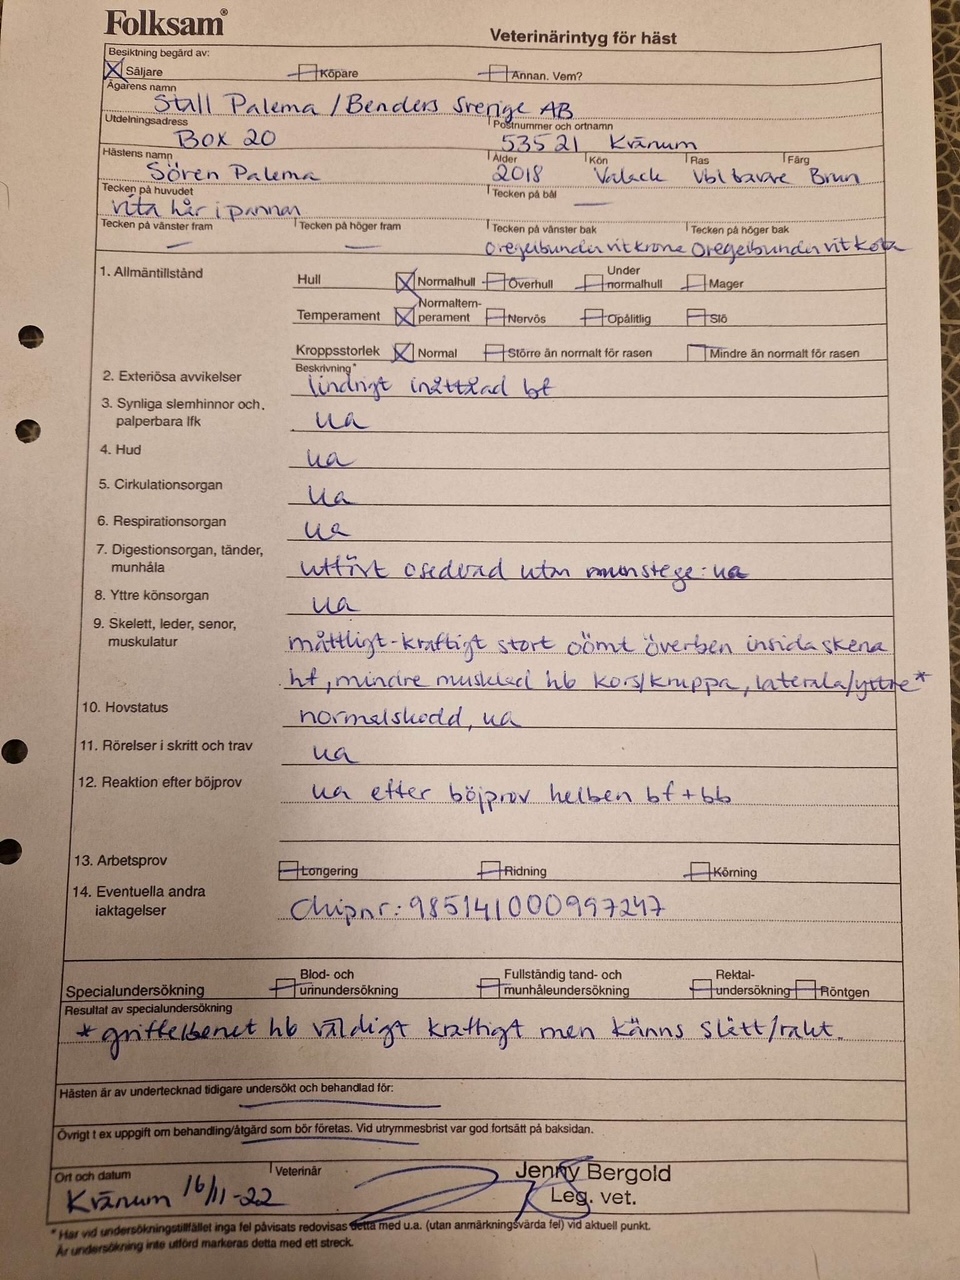 Folksam®
Veterinärintyg för häst
Besiktning begärd av:
Säljare Köpare Annan. Vem?
Ägarens namn
Stall Palema / Benders Sverige AB
Utdelningsadress Postnummer och ortnamn
Box 20 53521 Kvänum
Hästens namn Ålder Kön Ras Färg
Sören Palema 2018 Valack Vbl travare Brun
Tecken på huvudet Tecken på bål
vita hår i pannan —
Tecken på vänster fram Tecken på höger fram Tecken på vänster bak Tecken på höger bak
— — Oregelbunden vit krona Oregelbunden vit kota
1. Allmäntillstånd Hull Normalhull Överhull Under normalhull Mager
Temperament Normaltemperament Nervös Opålitlig Slö
Kroppsstorlek Normal Större än normalt för rasen Mindre än normalt för rasen
Beskrivning*
2. Exteriösa avvikelser lindrigt inåttåad bf
3. Synliga slemhinnor och,
palperbara lfk ua
4. Hud ua
5. Cirkulationsorgan ua
6. Respirationsorgan ua
7. Digestionsorgan, tänder,
munhåla utfört osederad utan munstege: ua
8. Yttre könsorgan ua
9. Skelett, leder, senor,
muskulatur måttligt-kraftigt stort oömt överben insida skena
hf, mindre musklad hb kors/kruppa, laterala/yttre*
10. Hovstatus normalskodd, ua
11. Rörelser i skritt och trav ua
12. Reaktion efter böjprov ua efter böjprov helben bf + bb
13. Arbetsprov Longering Ridning Körning
14. Eventuella andra
iaktagelser Chipnr: 985141000997247
Specialundersökning Blod- och urinundersökning Fullständig tand- och munhåleundersökning Rektal-undersökning Röntgen
Resultat av specialundersökning
* griffelbenet hb väldigt kraftigt men känns slätt/rakt.
Hästen är av undertecknad tidigare undersökt och behandlad för:
Övrigt t ex uppgift om behandling/åtgärd som bör företas. Vid utrymmesbrist var god fortsätt på baksidan.
Ort och datum Veterinär Jenny Bergold
Kvänum 16/11-22 Leg. vet.
* Har vid undersökningstillfället inga fel påvisats redovisas detta med u.a. (utan anmärkningsvärda fel) vid aktuell punkt.
Är undersökning inte utförd markeras detta med ett streck.